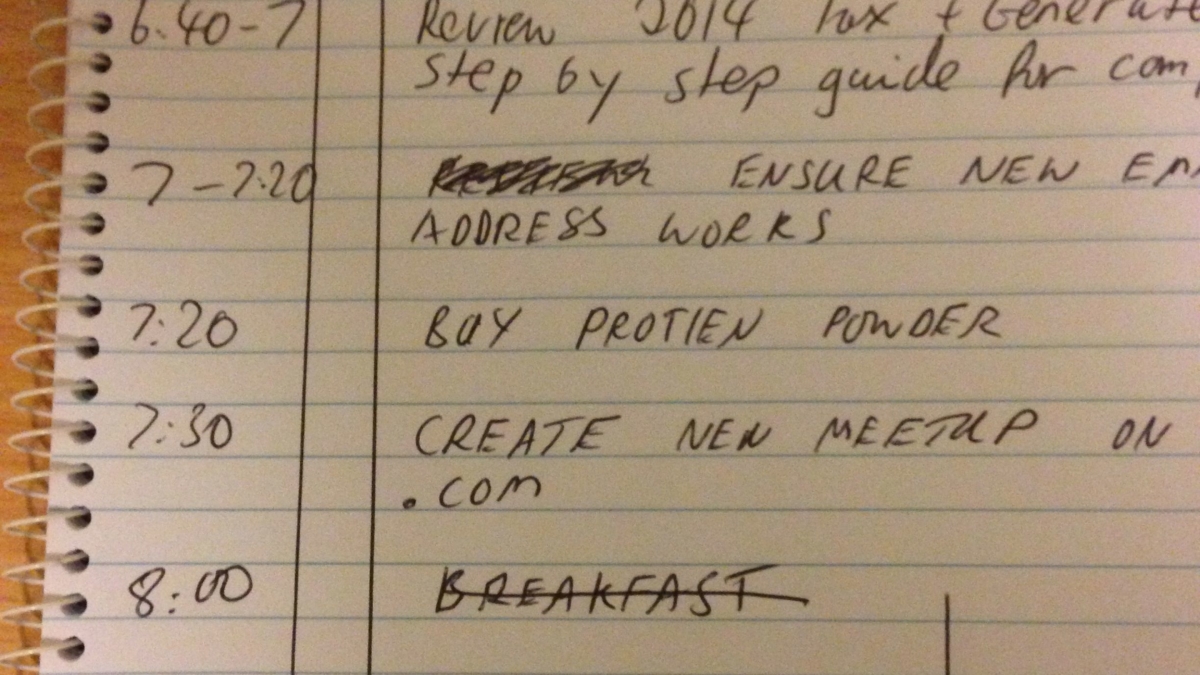 6.40-7 Review 2014 Tax + Generate
step by step guide for com
7-7.20 ENSURE NEW EM
ADDRESS WORKS
7:20 BUY PROTIEN POWDER
7:30 CREATE NEW MEETUP ON
.com
8:00 BREAKFAST